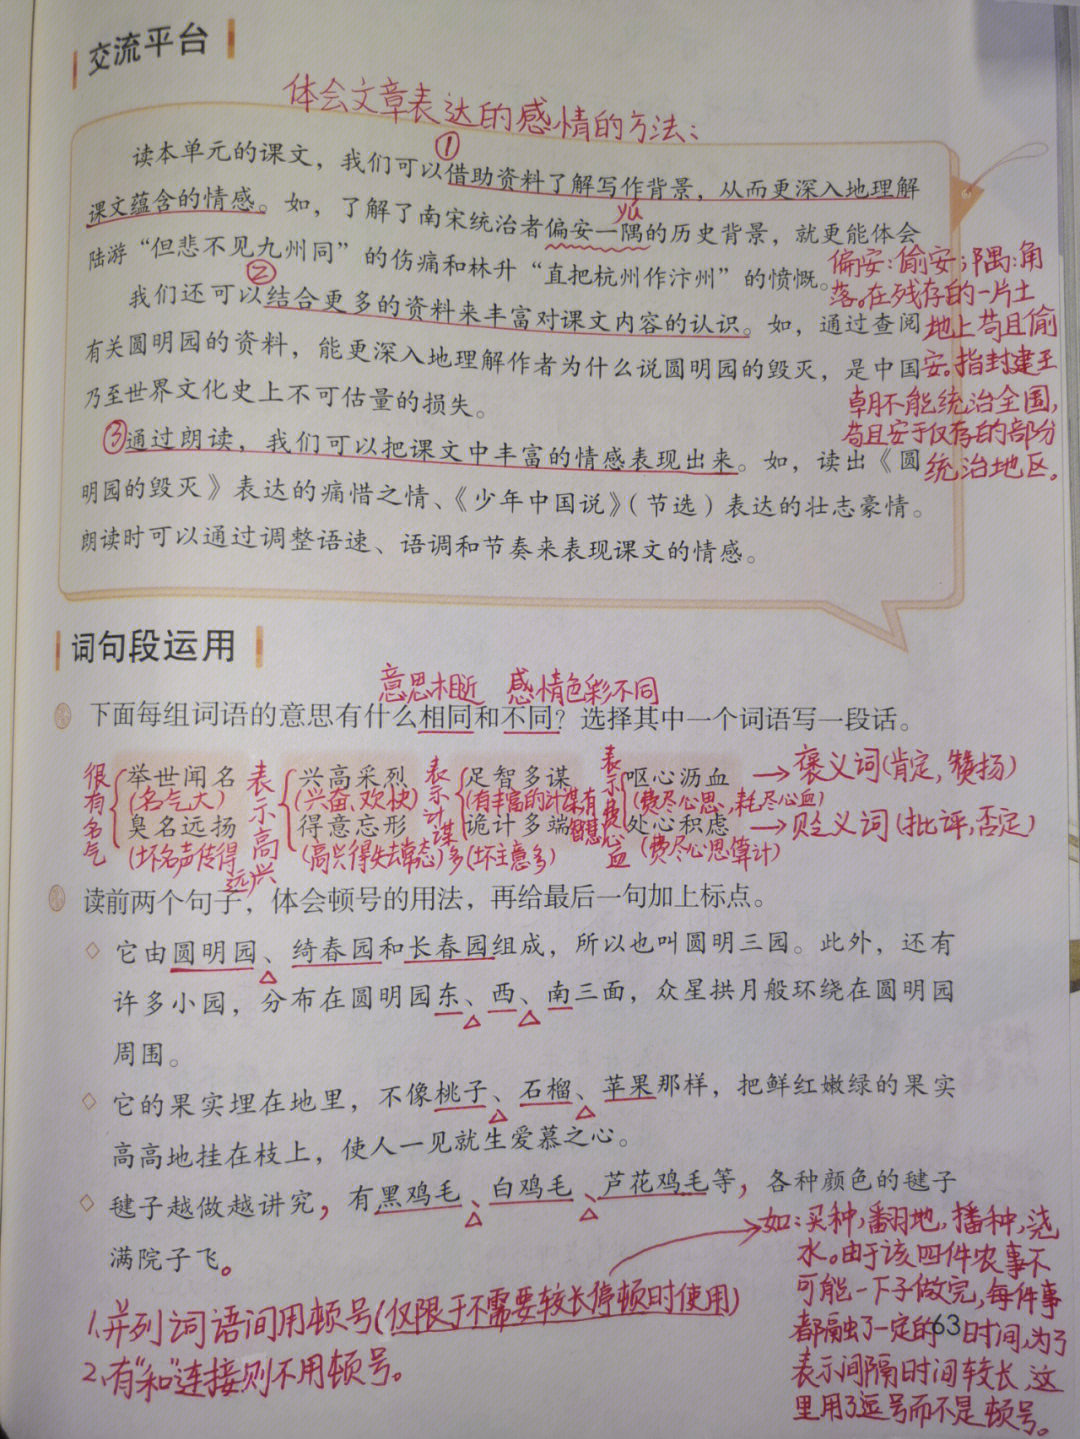 交流平台
体会文章表达的感情的方法：
①
读本单元的课文，我们可以借助资料了解写作背景，从而更深入地理解
课文蕴含的情感。如，了解了南宋统治者偏安一隅的历史背景，就更能体会
yú
陆游“但悲不见九州同”的伤痛和林升“直把杭州作汴州”的愤慨。
②
我们还可以结合更多的资料来丰富对课文内容的认识。如，通过查阅
有关圆明园的资料，能更深入地理解作者为什么说圆明园的毁灭，是中国
乃至世界文化史上不可估量的损失。
③通过朗读，我们可以把课文中丰富的情感表现出来。如，读出《圆
明园的毁灭》表达的痛惜之情、《少年中国说》（节选）表达的壮志豪情。
朗读时可以通过调整语速、语调和节奏来表现课文的情感。
偏安：偷安；隅：角
落。在残存的一片土
地上苟且偷
安。指封建王
朝不能统治全国，
苟且安于仅存的部分
统治地区。
词句段运用
意思相近 感情色彩不同
下面每组词语的意思有什么相同和不同？选择其中一个词语写一段话。
很有名气
举世闻名
(名气大)
臭名远扬
(坏名声传得远)
表示高兴
兴高采烈
(兴奋、欢快)
得意忘形
(高兴得失去常态)
表示计谋多
足智多谋
(有丰富的计谋，有智慧)
诡计多端
(坏主意多)
表示费心血
呕心沥血
(费尽心思，耗尽心血)
处心积虑
(费尽心思算计)
褒义词(肯定，赞扬)
贬义词(批评，否定)
读前两个句子，体会顿号的用法，再给最后一句加上标点。
◇ 它由圆明园、绮春园和长春园组成，所以也叫圆明三园。此外，还有
许多小园，分布在圆明园东、西、南三面，众星拱月般环绕在圆明园
周围。
◇ 它的果实埋在地里，不像桃子、石榴、苹果那样，把鲜红嫩绿的果实
高高地挂在枝上，使人一见就生爱慕之心。
◇ 毽子越做越讲究，有黑鸡毛、白鸡毛、芦花鸡毛等，各种颜色的毽子
满院子飞。
1.并列词语间用顿号(仅限于不需要较长停顿时使用)
2.有“和”连接则不用顿号。
如：买种，翻地，播种，浇
水。由于该四件农事不
可能一下子做完，每件事
都隔了一定的时间，为了
表示间隔时间较长，这
里用了逗号而不是顿号。
63